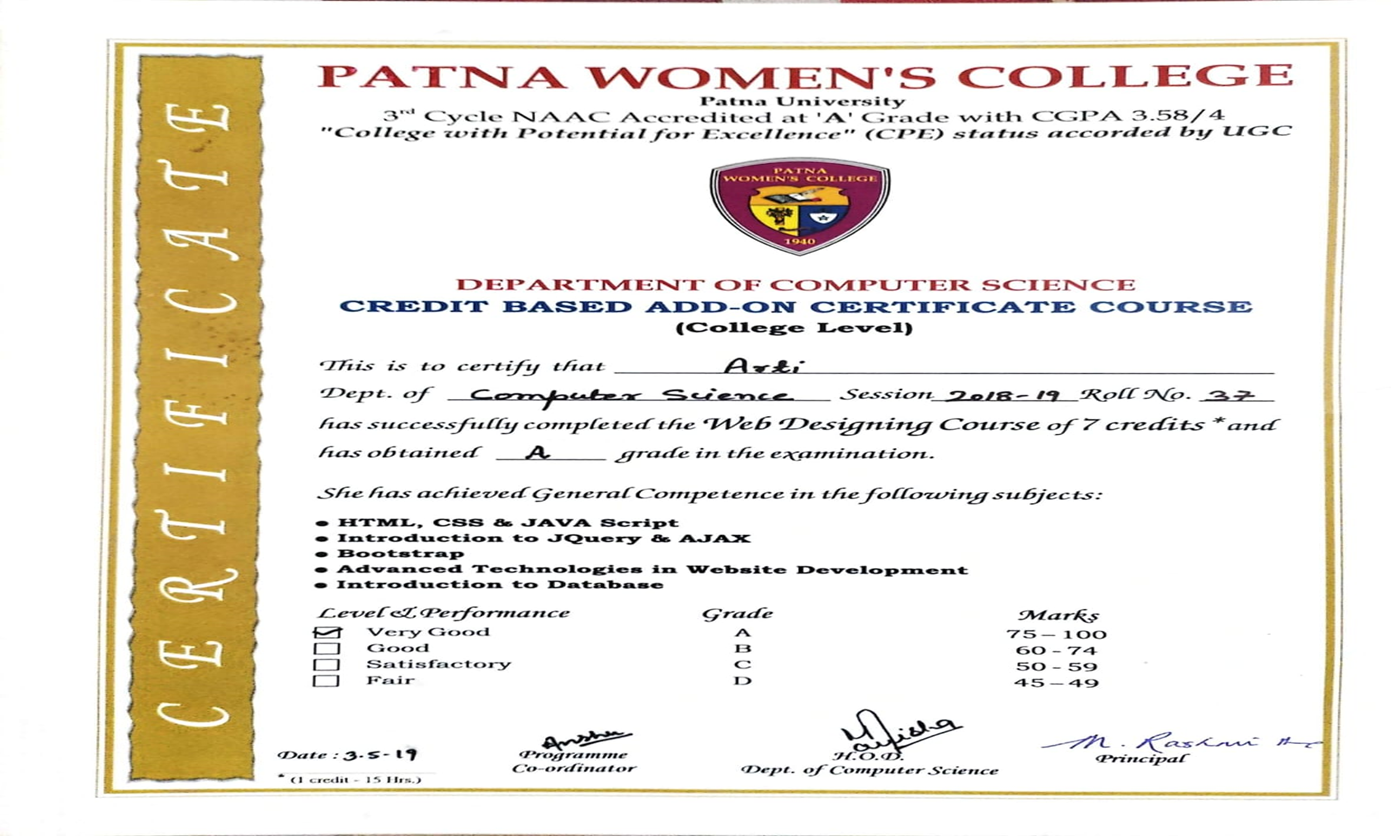 CERTIFICATE
PATNA WOMEN'S COLLEGE
Patna University
3rd Cycle NAAC Accredited at 'A' Grade with CGPA 3.58/4
"College with Potential for Excellence" (CPE) status accorded by UGC
PATNA
WOMEN'S COLLEGE
1940
DEPARTMENT OF COMPUTER SCIENCE
CREDIT BASED ADD-ON CERTIFICATE COURSE
(College Level)
This is to certify that Arti
Dept. of Computer Science Session 2018-19 Roll No. 37
has successfully completed the Web Designing Course of 7 credits * and
has obtained A grade in the examination.
She has achieved General Competence in the following subjects:
• HTML, CSS & JAVA Script
• Introduction to JQuery & AJAX
• Bootstrap
• Advanced Technologies in Website Development
• Introduction to Database
Level & Performance Grade Marks
Very Good A 75 – 100
Good B 60 - 74
Satisfactory C 50 - 59
Fair D 45 – 49
Date : 3.5-19
Programme
Co-ordinator
H.O.D.
Dept. of Computer Science
M. Rashmi
Principal
* (1 credit - 15 Hrs.)